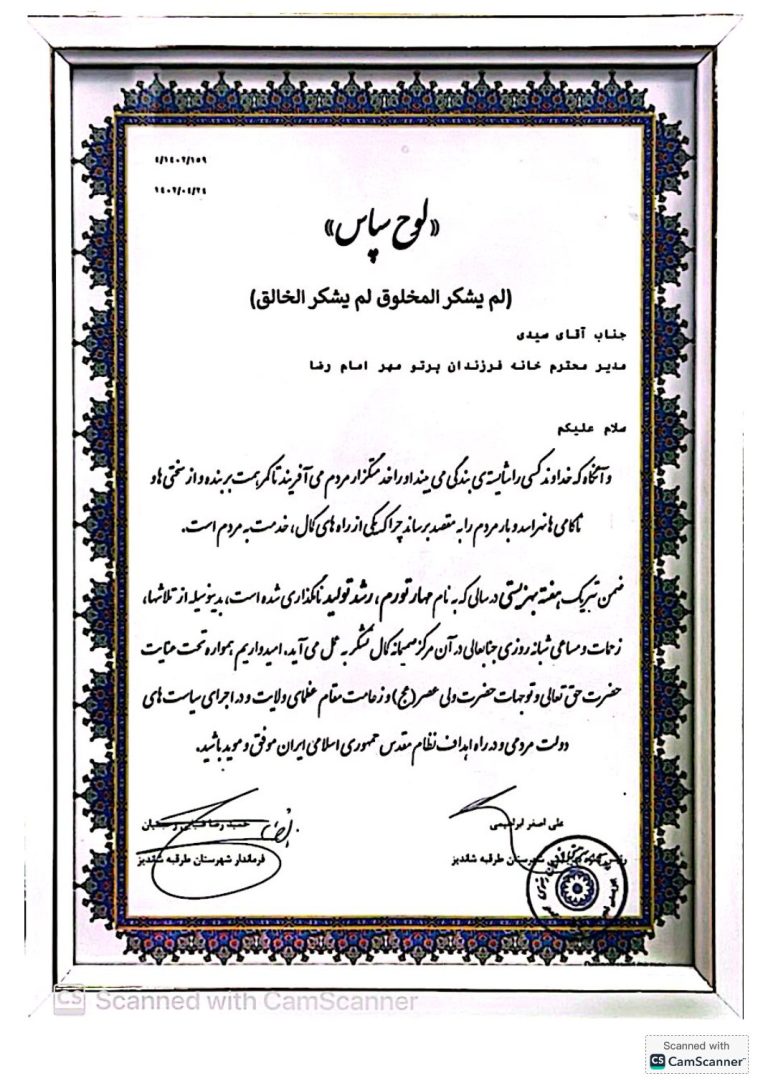 ۴/۱۴۰۲/۱۵۹
۱۴۰۲/۰۴/۲۴
«لوح سپاس»
(لم یشکر المخلوق لم یشکر الخالق)
جناب آقای صیدی
مدیر محترم خانه فرزندان پرتو مهر امام رضا
سلام علیکم
و آنگاه که خداوند کسی را شایسته‌ی بندگی می بیند او را خدمتگزار مردم می آفریند تا کمر همت بربنده و از سختی ها و
ناکامی ها نهراسد و بار مردم را به مقصد برساند چرا که یکی از راه های کمال، خدمت به مردم است.
ضمن تبریک هفته بهزیستی در سالی که به نام مهار تورم، رشد تولید نامگذاری شده است، بدینوسیله از تلاشها،
زحمات و مساعی شبانه روزی جنابعالی در آن مرکز صمیمانه کمال تشکر به عمل می آید. امیدواریم همواره تحت عنایت
حضرت حق تعالی و توجهات حضرت ولی عصر(عج) و زعامت مقام عظمای ولایت و در اجرای سیاست های
دولت مردمی و در راه اهداف نظام مقدس جمهوری اسلامی ایران موفق و موید باشید.
علی اصغر ابراهیمی
شهرستان طرقبه شاندیز
حمیدرضا
فرماندار شهرستان طرقبه شاندیز
CS Scanned with CamScanner
Scanned with
CS CamScanner